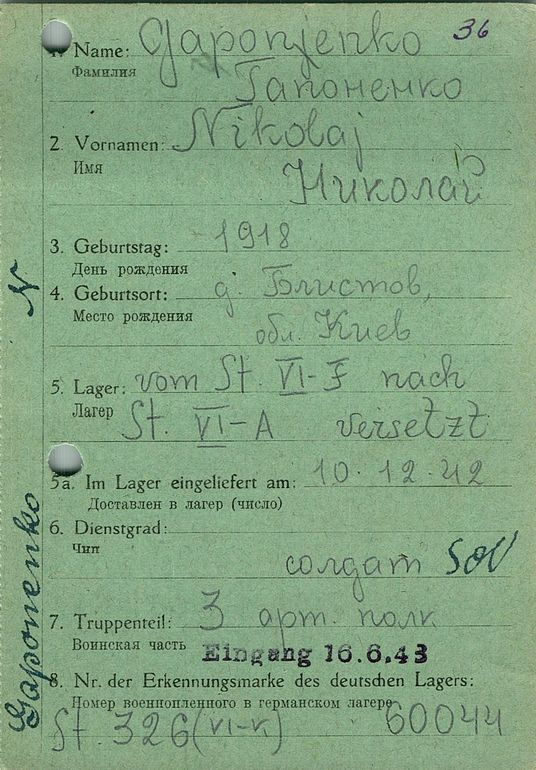 36
1. Name: Gaponjenko
Фамилия
Гапоненко
2. Vornamen: Nikolaj
Имя
Николай
3. Geburtstag: 1918
День рождения
4. Geburtsort: д. Блистов,
Место рождения
обл. Киев
5. Lager: vom St. VI-F nach
Лагер
St. VI-A versetzt
5a. Im Lager eingeliefert am: 10.12.42
Доставлен в лагер (число)
6. Dienstgrad:
Чин
солдат Sol
7. Truppenteil: 3 арт. полк
Воинская часть
Eingang 16.6.43
8. Nr. der Erkennungsmarke des deutschen Lagers:
Номер военнопленного в германском лагере
St. 326 (VI-K) 60044
Gaponenko N